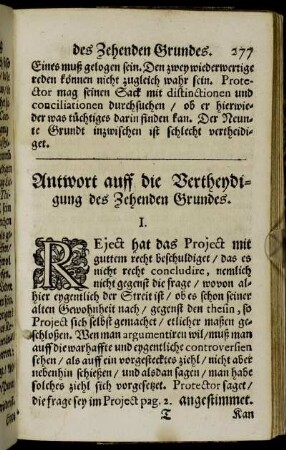 des Zehenden Grundes. 277
Eines muß gelogen sein. Den zwey wiederwertige
reden können nicht zugleich wahr sein. Prote-
ctor mag seinen Sack mit distinctionen und
conciliationen durchsuchen / ob er hierwie-
der was tüchtiges darin finden kan. Der Neun-
te Grundt inzwischen ist schlecht vertheidi-
get.
Antwort auff die Vertheydi-
gung des Zehenden Grundes.
I.
REject hat das Project mit
guttem recht beschuldiget / das es
nicht recht concludire, nemlich
nicht gegenst die frage / wovon al-
hier eygentlich der Streit ist / ob es schon seiner
alten Gewohnheit nach / gegenst den thesin, so
Project sich selbst gemachet / etlicher maßen ge-
schloßen. Wen man argumentiren wil / muß man
auff die warhaffte und eygentliche controversien
sehen / als auff ein vorgestecktes ziehl / nicht aber
nebenhin schießen / und als dan sagen / man habe
solches ziehl sich vorgesetzt. Protector saget /
die frage sey im Project pag. 2. angestimmet.
T Kan